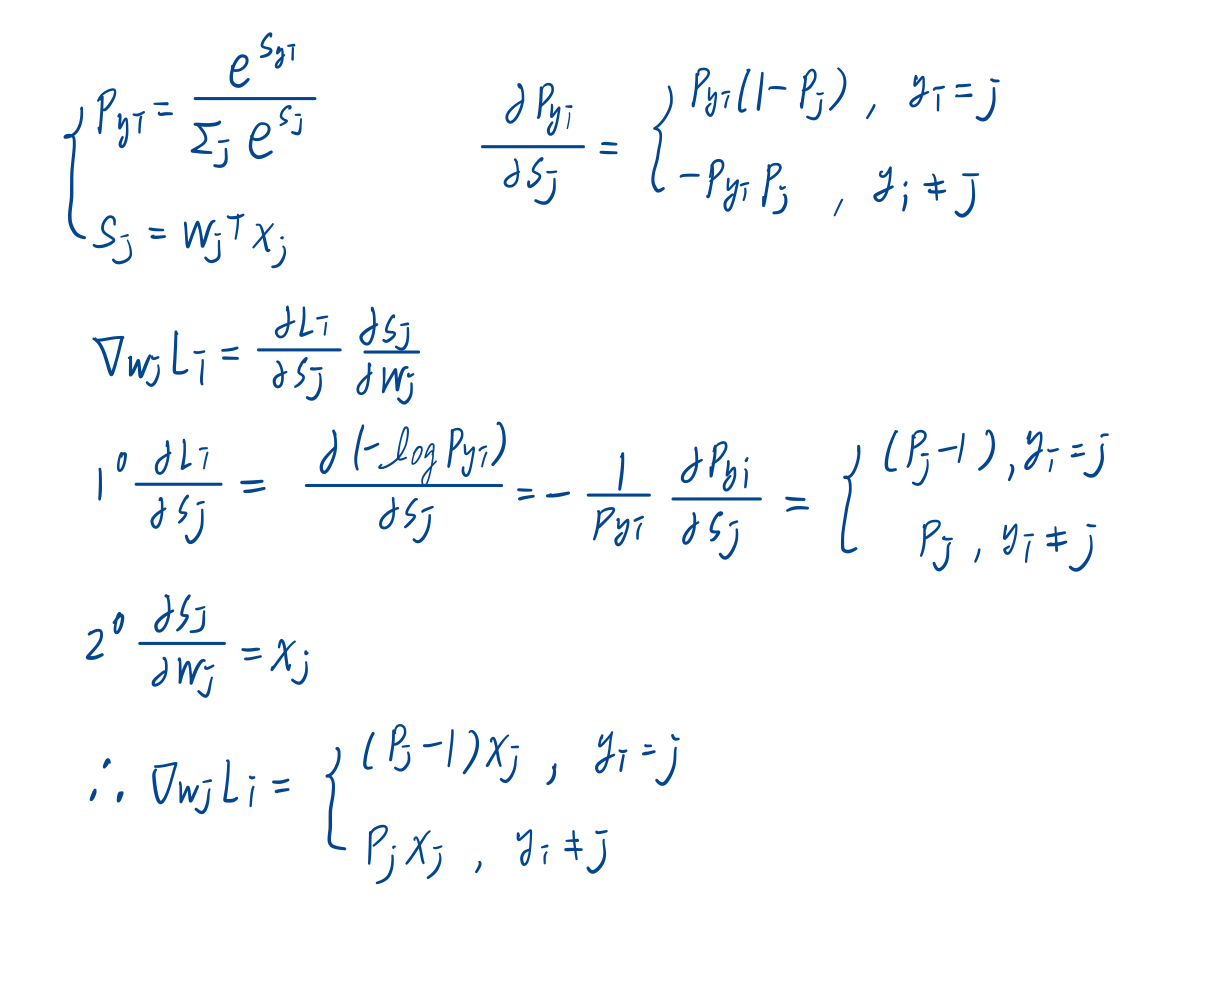 P_{yi} = \frac{e^{s_{yi}}}{\sum_j e^{s_j}}
s_j = w_j^T x_j
\frac{∂P_{yi}}{∂s_j} = { P_{yi}(1-P_j), y_i = j
-P_{yi}P_j, y_i ≠ j
∇_{w_j} L_i = \frac{∂L_i}{∂s_j} \frac{∂s_j}{∂w_j}
1° \frac{∂L_i}{∂s_j} = \frac{∂(-log P_{yi})}{∂s_j} = -\frac{1}{P_{yi}} \frac{∂P_{yi}}{∂s_j} = { (P_j-1), y_i = j
P_j, y_i ≠ j
2° \frac{∂s_j}{∂w_j} = x_j
∴ ∇_{w_j} L_i = { (P_j-1)x_j, y_i = j
P_j x_j, y_i ≠ j